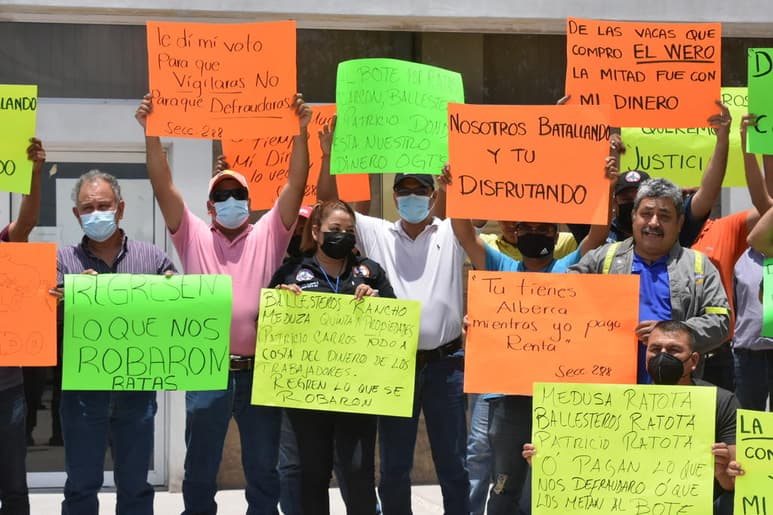 le dí mi voto
Para que
Vigilaras No
Para que Defraudaras
Secc. 288
BALLESTEROS
PATRICIO
ESTA NUESTRO
DINERO OGTS
DE LAS VACAS QUE
COMPRO EL WERO
LA MITAD FUE CON
MI DINERO
JUSTICIA
NOSOTROS BATALLANDO
Y TU
DISFRUTANDO
REGRESEN
LO QUE NOS
ROBARON
RATAS
BALLESTEROS RANCHO
MEDUZA QUINTA Y PROPIEDADES
PATRICIO CARROS TODO A
COSTA DEL DINERO DE LOS
TRABAJADORES.
REGREN LO QUE SE
ROBARON
"Tu tienes
Alberca
mientras yo pago
Renta"
Secc 288
MEDUSA RATOTA
BALLESTEROS RATOTA
PATRICIO RATOTA
Ó PAGAN LO QUE
NOS DEFRAUDARO Ó QUE
LOS METAN AL BOTE
LA
CO
MI